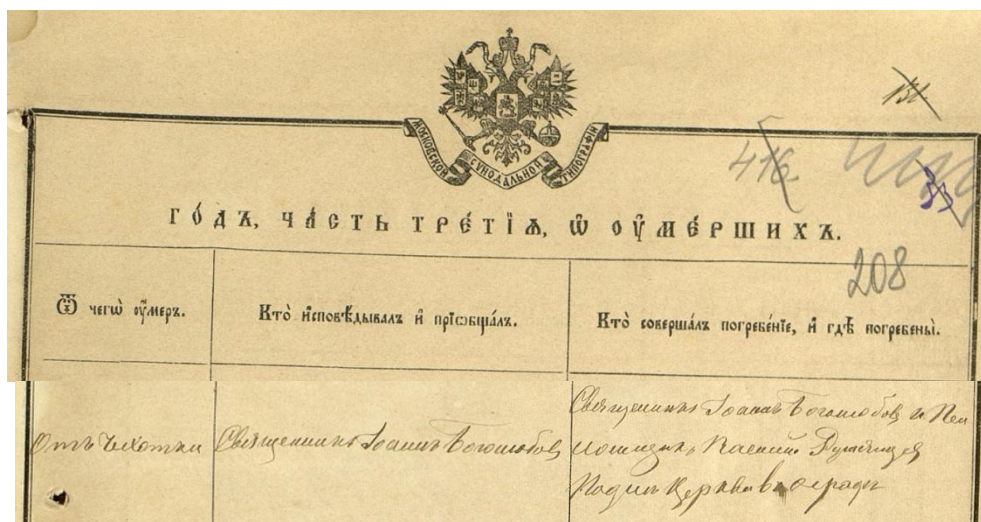 МОСКОВСКОЙ СѴНОДАЛЬНОЙ ТИПОГРАФІИ
33
208
ГО́ДЪ, ЧА́СТЬ ТРЕ́ТІѦ, Ѽ ОУ҆МЕ́РШИХЪ.
Ѿ чегѡ̀ оу҆́меръ.
Кто̀ и҆сповѣ́дывалъ и҆ пріѡбща́лъ.
Кто̀ соверша́лъ погребе́ніе, и҆ гдѣ̀ погребены̀.
Отъ Чахотки
Священникъ Іоаннъ Боголюбовъ
Священникъ Іоаннъ Боголюбовъ и
Церкви въ оградѣ